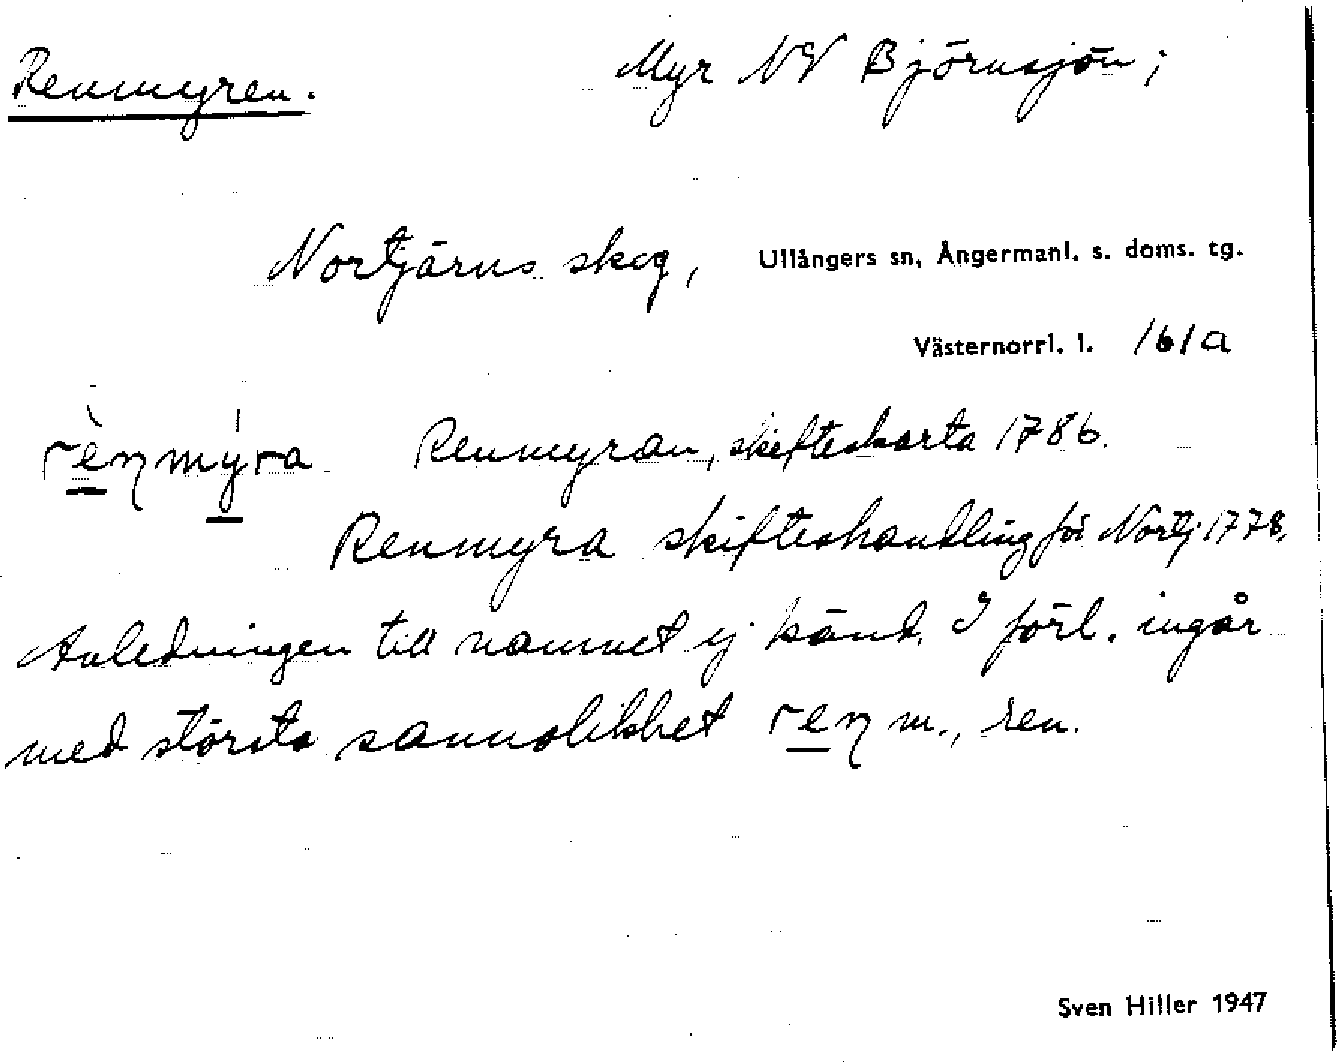 Renmyren. Myr NV Björnsjön;
Nortjärns skog, Ullångers sn, Ångermanl. s. doms. tg.
Västernorrl. l. 161a
Renmyran, skifteskarta 1786.
Renmyra skifteshandling för Nortj. 1778.
Anledningen till namnet ej känd. I förl. ingår
med största sannolikhet ren m., ren.
Sven Hiller 1947